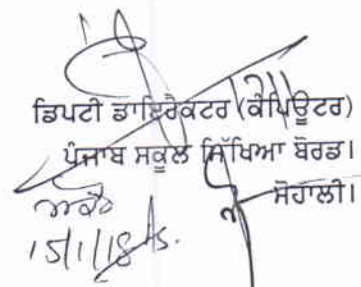 ਡਿਪਟੀ ਡਾਇਰੈਕਟਰ (ਕੰਪਿਊਟਰ)
ਪੰਜਾਬ ਸਕੂਲ ਸਿੱਖਿਆ ਬੋਰਡ।
ਮੋਹਾਲੀ।
15/1/18